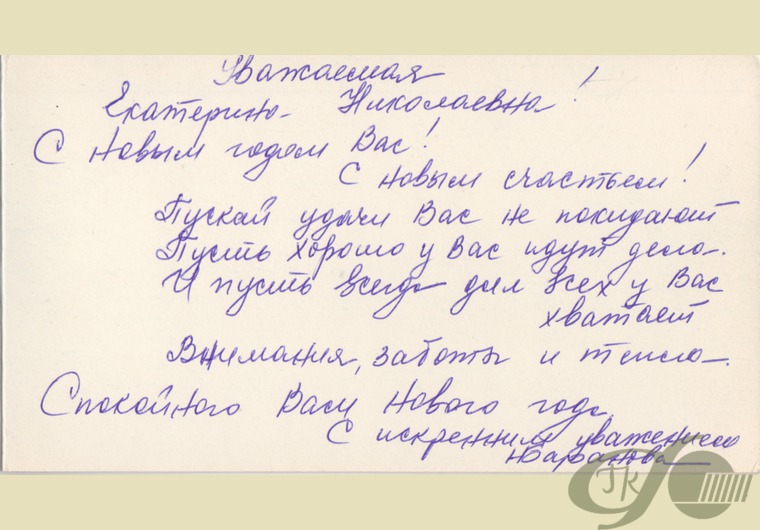 Уважаемая
Екатерина Николаевна!
С Новым годом Вас!
С новым счастьем!
Пускай удачи Вас не покидают
Пусть хорошо у Вас идут дела.
И пусть всегда для всех у Вас
хватает
Внимания, заботы и тепла.
Спокойного Вам Нового года.
С искренним уважением
Баранова
ГК